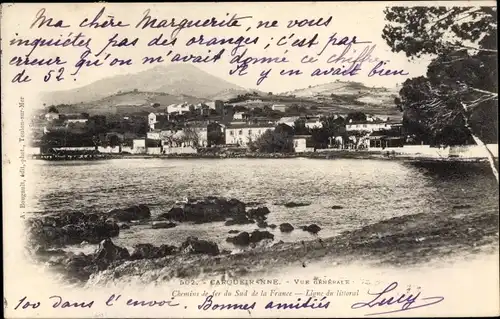 Ma chère Marguerite, ne vous
inquiétez pas des oranges ; c'est par ce chiffre
erreur qu'on m'avait demandé
de 52.
Il y en avait bien
502. CARQUEIRANNE. — VUE GÉNÉRALE
Chemins de fer du Sud de la France - Ligne du littoral
100 dans l'envoi. Bonnes amitiés Lucy
A. Bougault, édit.-phot., Toulon-sur-Mer